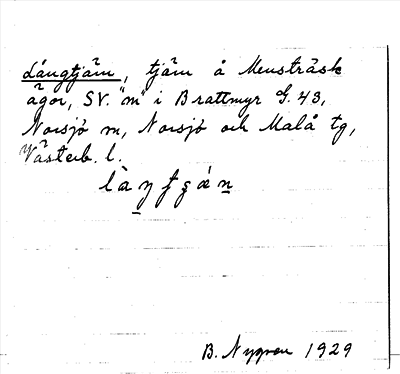 Långtjärn, tjärn å Mensträsk
ägor, SV. "m" i Brattmyr G. 43,
Norsjö sn, Norsjö och Malå tg,
Västerb. l.
B. Nygren 1929